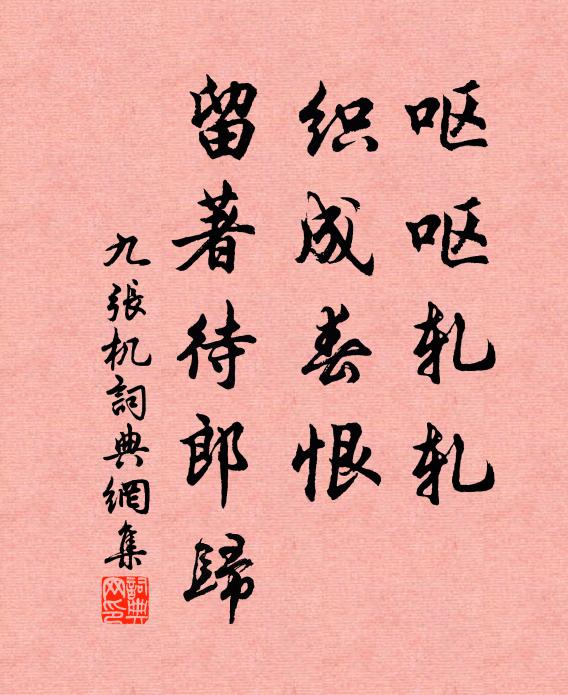 呕呕轧轧
织成春恨
留著待郎歸
九張机詞典網集
詞典网印